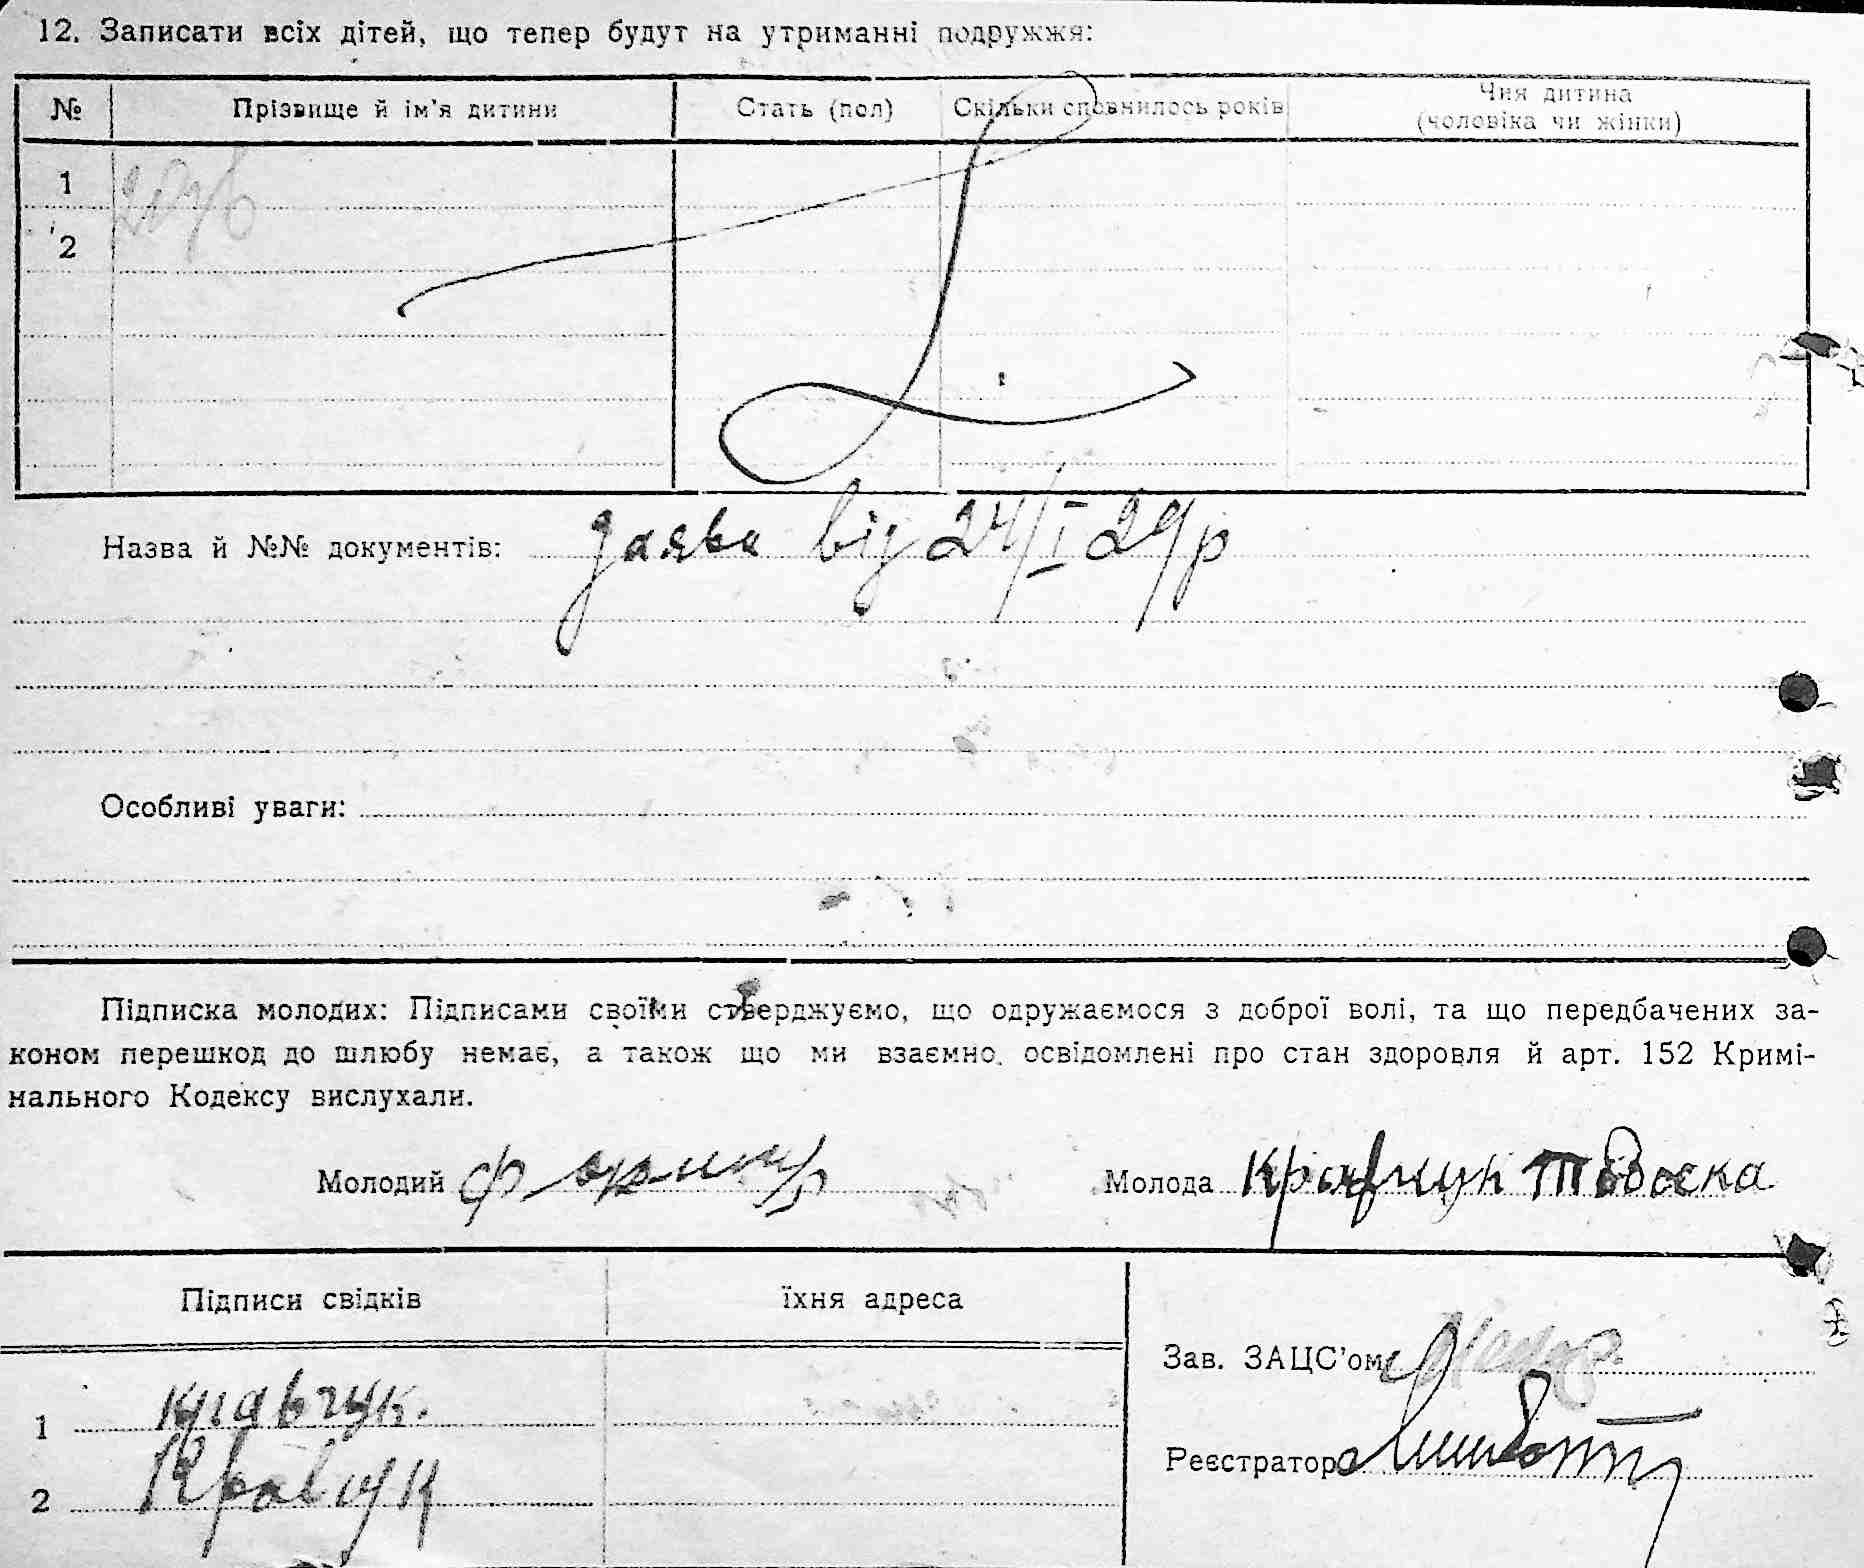 12. Записати всіх дітей, що тепер будут на утриманні подружжя:
№ Прізвище й ім'я дитини Стать (пол) Скільки сповнилось років Чия дитина (чоловіка чи жінки)
1
2
Назва й №№ документів: заява від 24/I 29 р
Особливі уваги:
Підписка молодих: Підписами своїми стверджуємо, що одружаємося з доброї волі, та що передбачених за-
коном перешкод до шлюбу немає, а також що ми взаємно освідомлені про стан здоровля й арт. 152 Кримі-
нального Кодексу вислухали.
Молодий Молода Кравчук Тодоска
Підписи свідків їхня адреса
Зав. ЗАЦС'ом
1 Кравчук.
Реєстратор
2 Кравчук